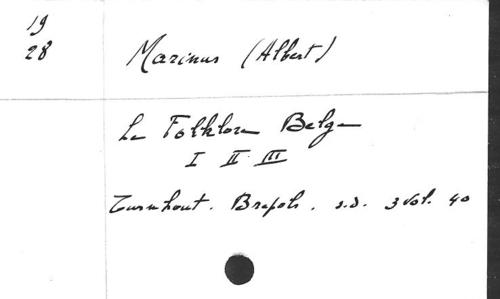 19
28
Marinus (Albert)
Le Folklore Belge
I II III
Turnhout. Brepols. s.d. 3 vol. 40